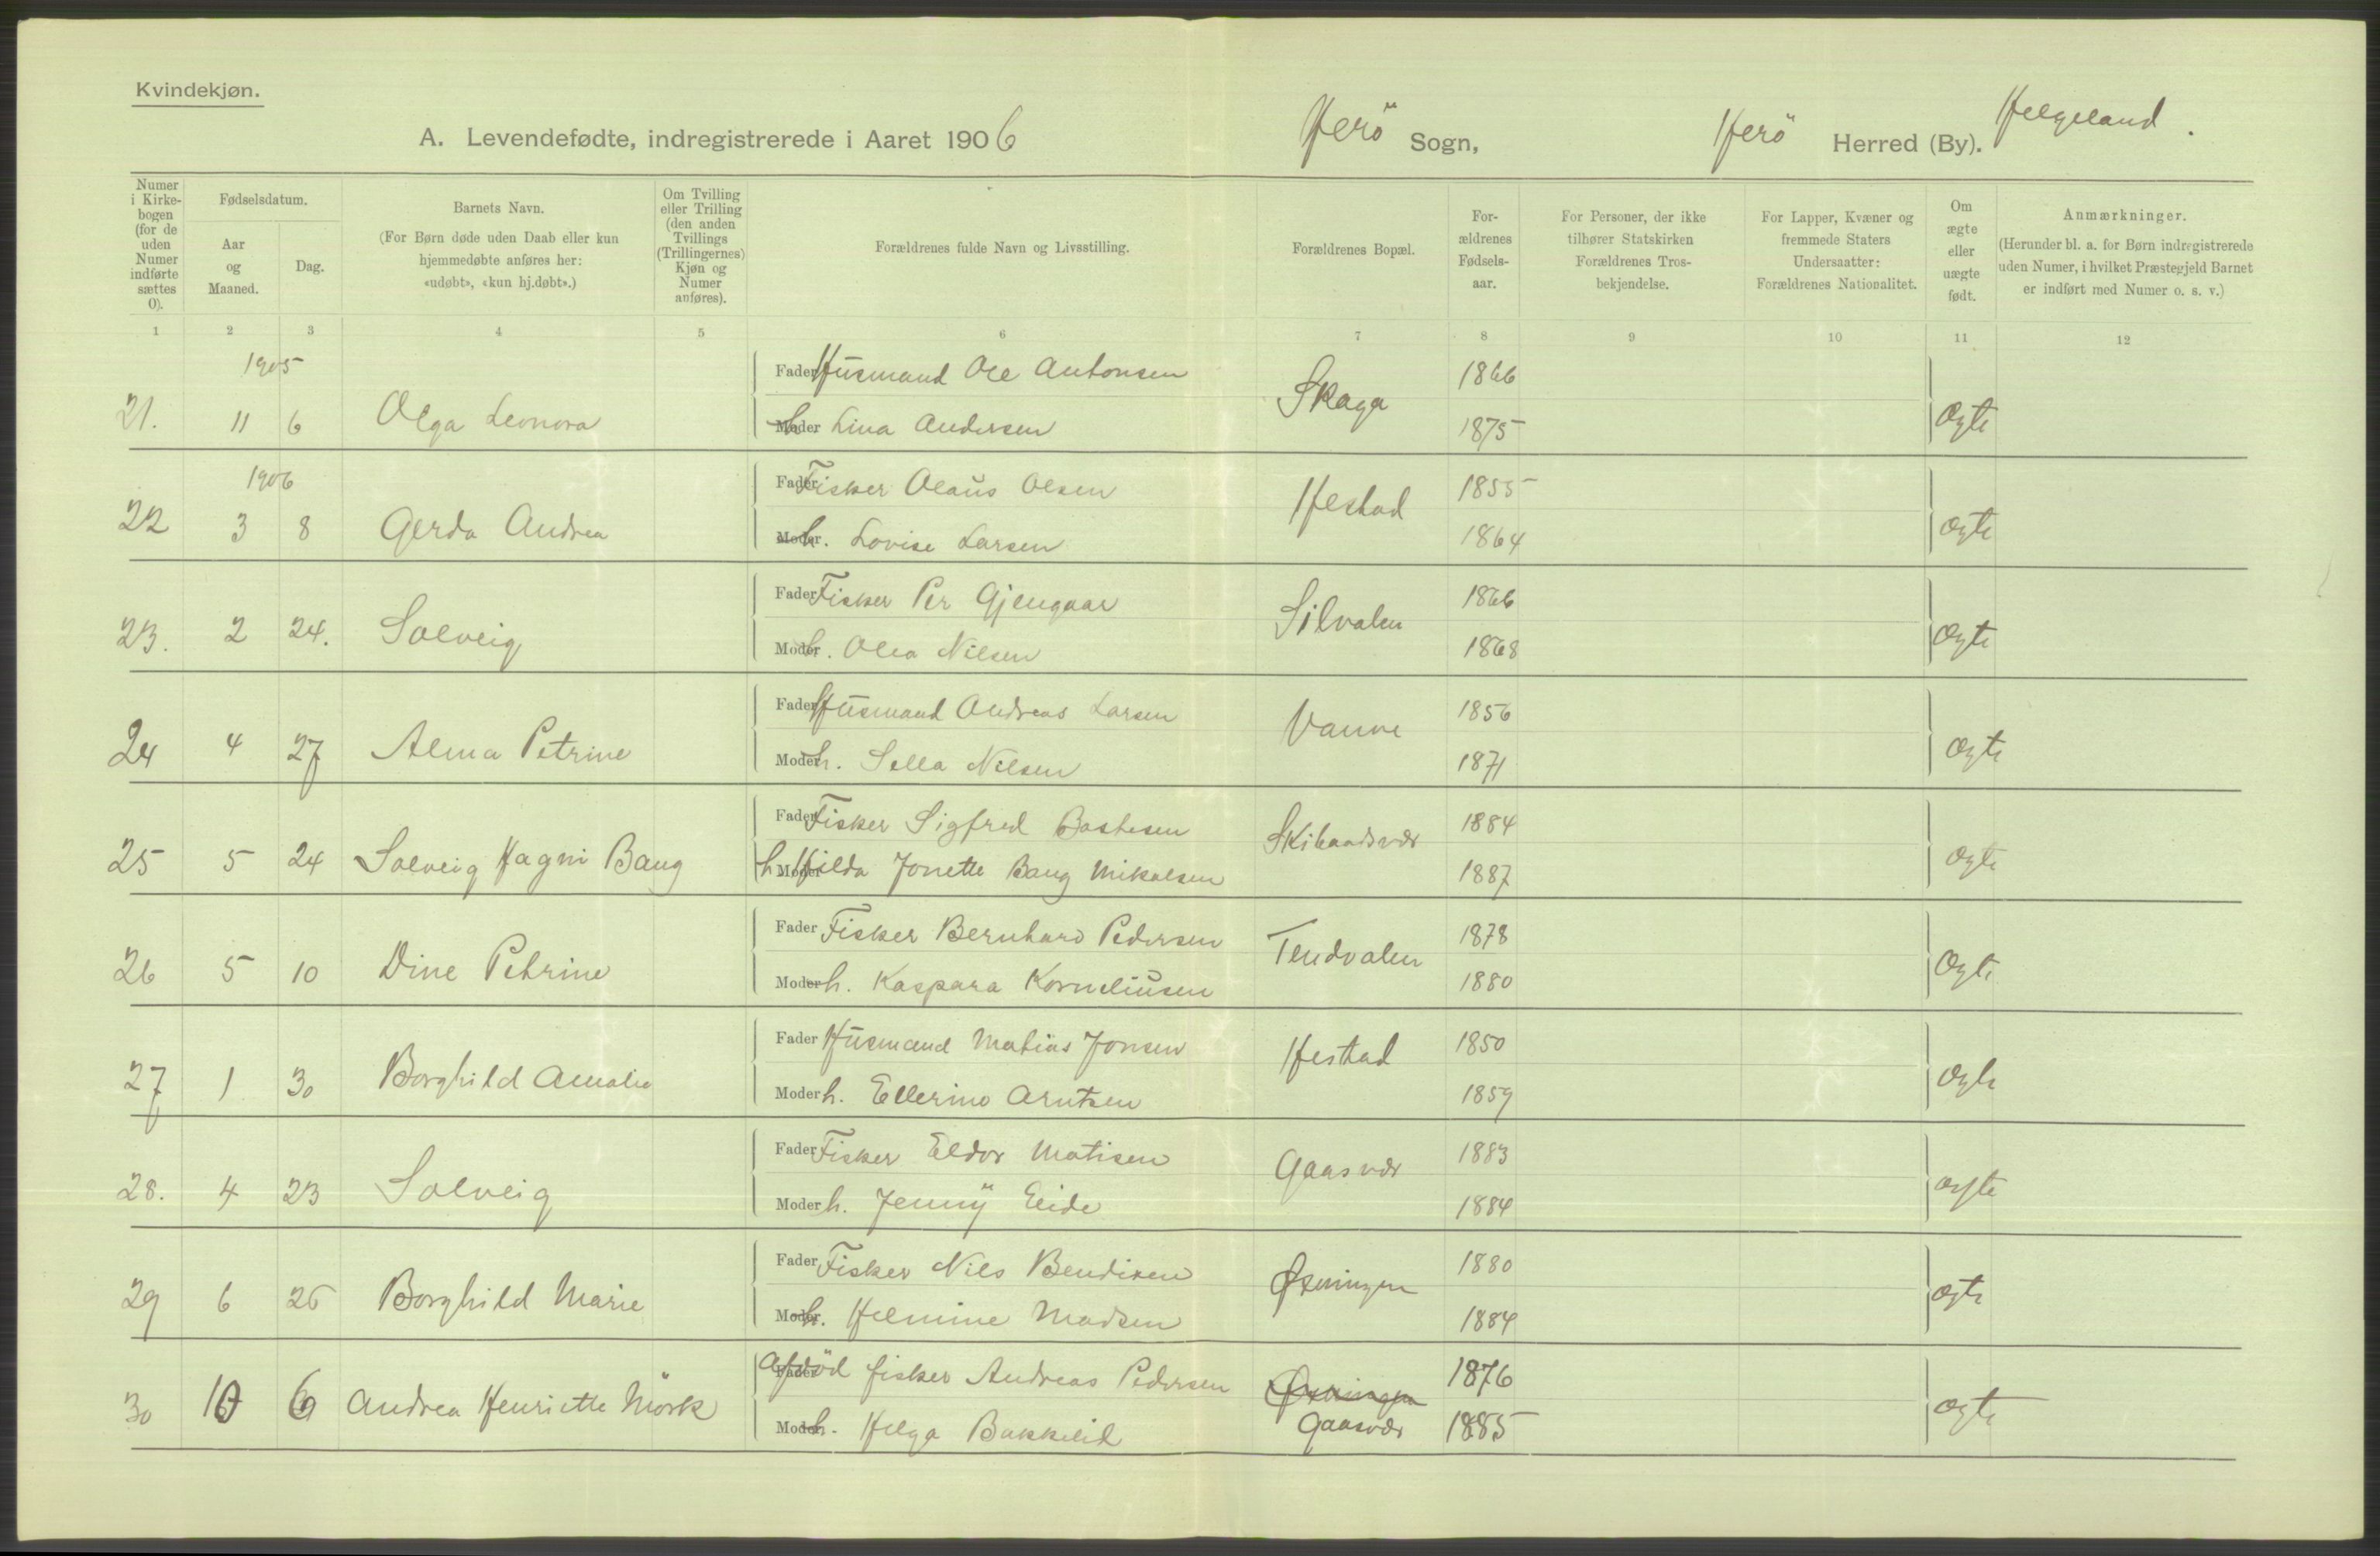 Kvindekjøn.
A. Levendefødte, indregistrerede i Aaret 1906 Herö Sogn, Herö Herred (By). Helgeland.
Numer i Kirkebogen (for de uden Numer indførte sættes 0).
Fødselsdatum.
Aar og Maaned.
Dag.
Barnets Navn.
(For Børn døde uden Daab eller kun hjemmedøbte anføres her: «udøbt», «kun hj.døbt».)
Om Tvilling eller Trilling (den anden Tvillings (Trillingernes) Kjøn og Numer anføres).
Forældrenes fulde Navn og Livsstilling.
Forældrenes Bopæl.
Forældrenes Fødselsaar.
For Personer, der ikke tilhører Statskirken Forældrenes Trosbekjendelse.
For Lapper, Kvæner og fremmede Staters Undersaatter: Forældrenes Nationalitet.
Om ægte eller uægte født.
Anmærkninger.
(Herunder bl. a. for Børn indregistrerede uden Numer, i hvilket Præstegjeld Barnet er indført med Numer o. s. v.)
1 2 3 4 5 6 7 8 9 10 11 12
1905
21. 11 6 Olga Leonora Fader Husmand Ole Antonsen Skaga 1866 Ægte
Moder h. Lina Andersen 1875
1906
22 3 8 Gerda Andrea Fader Fisker Olaus Olsen Hestad 1855 ægte
Moder h. Lovise Larsen 1864
23. 2 24. Solveig Fader Fisker Per Gjengaar Silvalen 1866 Ægte
Moder h. Olea Nilsen 1868
24 4 27 Alma Petrine Fader Husmand Andreas Larsen Vanve 1856 ægte
Moder h. Sella Nilsen 1871
25 5 24 Solveig Hagni Bang Fader Fisker Sigfred Bastesen Skibaadsvær 1884 ægte
h Moder Hilda Jonette Bang Mikalsen 1887
26 5 10 Dine Petrine Fader Fisker Bernhard Pedersen Tendvalen 1878 Ægte
Moder h. Kaspara Korneliusen 1880
27 1 30 Borghild Amalie Fader Husmand Matias Jonsen Hestad 1850 ægte
Moder h. Ellerine Arntsen 1859
28. 4 23 Solveig Fader Fisker Eldor Matisen Gaasvær 1883 ægte
Moder h. Jenny Eide 1884
29 6 26 Borghild Marie Fader Fisker Nils Bendixen Øksningen 1880 ægte
Moder h. Helmine Madsen 1884
30 10 6 Andrea Henriette Mörk Fader Afdöd fisker Andreas Pedersen Øksningen 1876 ægte
Moder h. Helga Bakkeid Gaasvær 1885